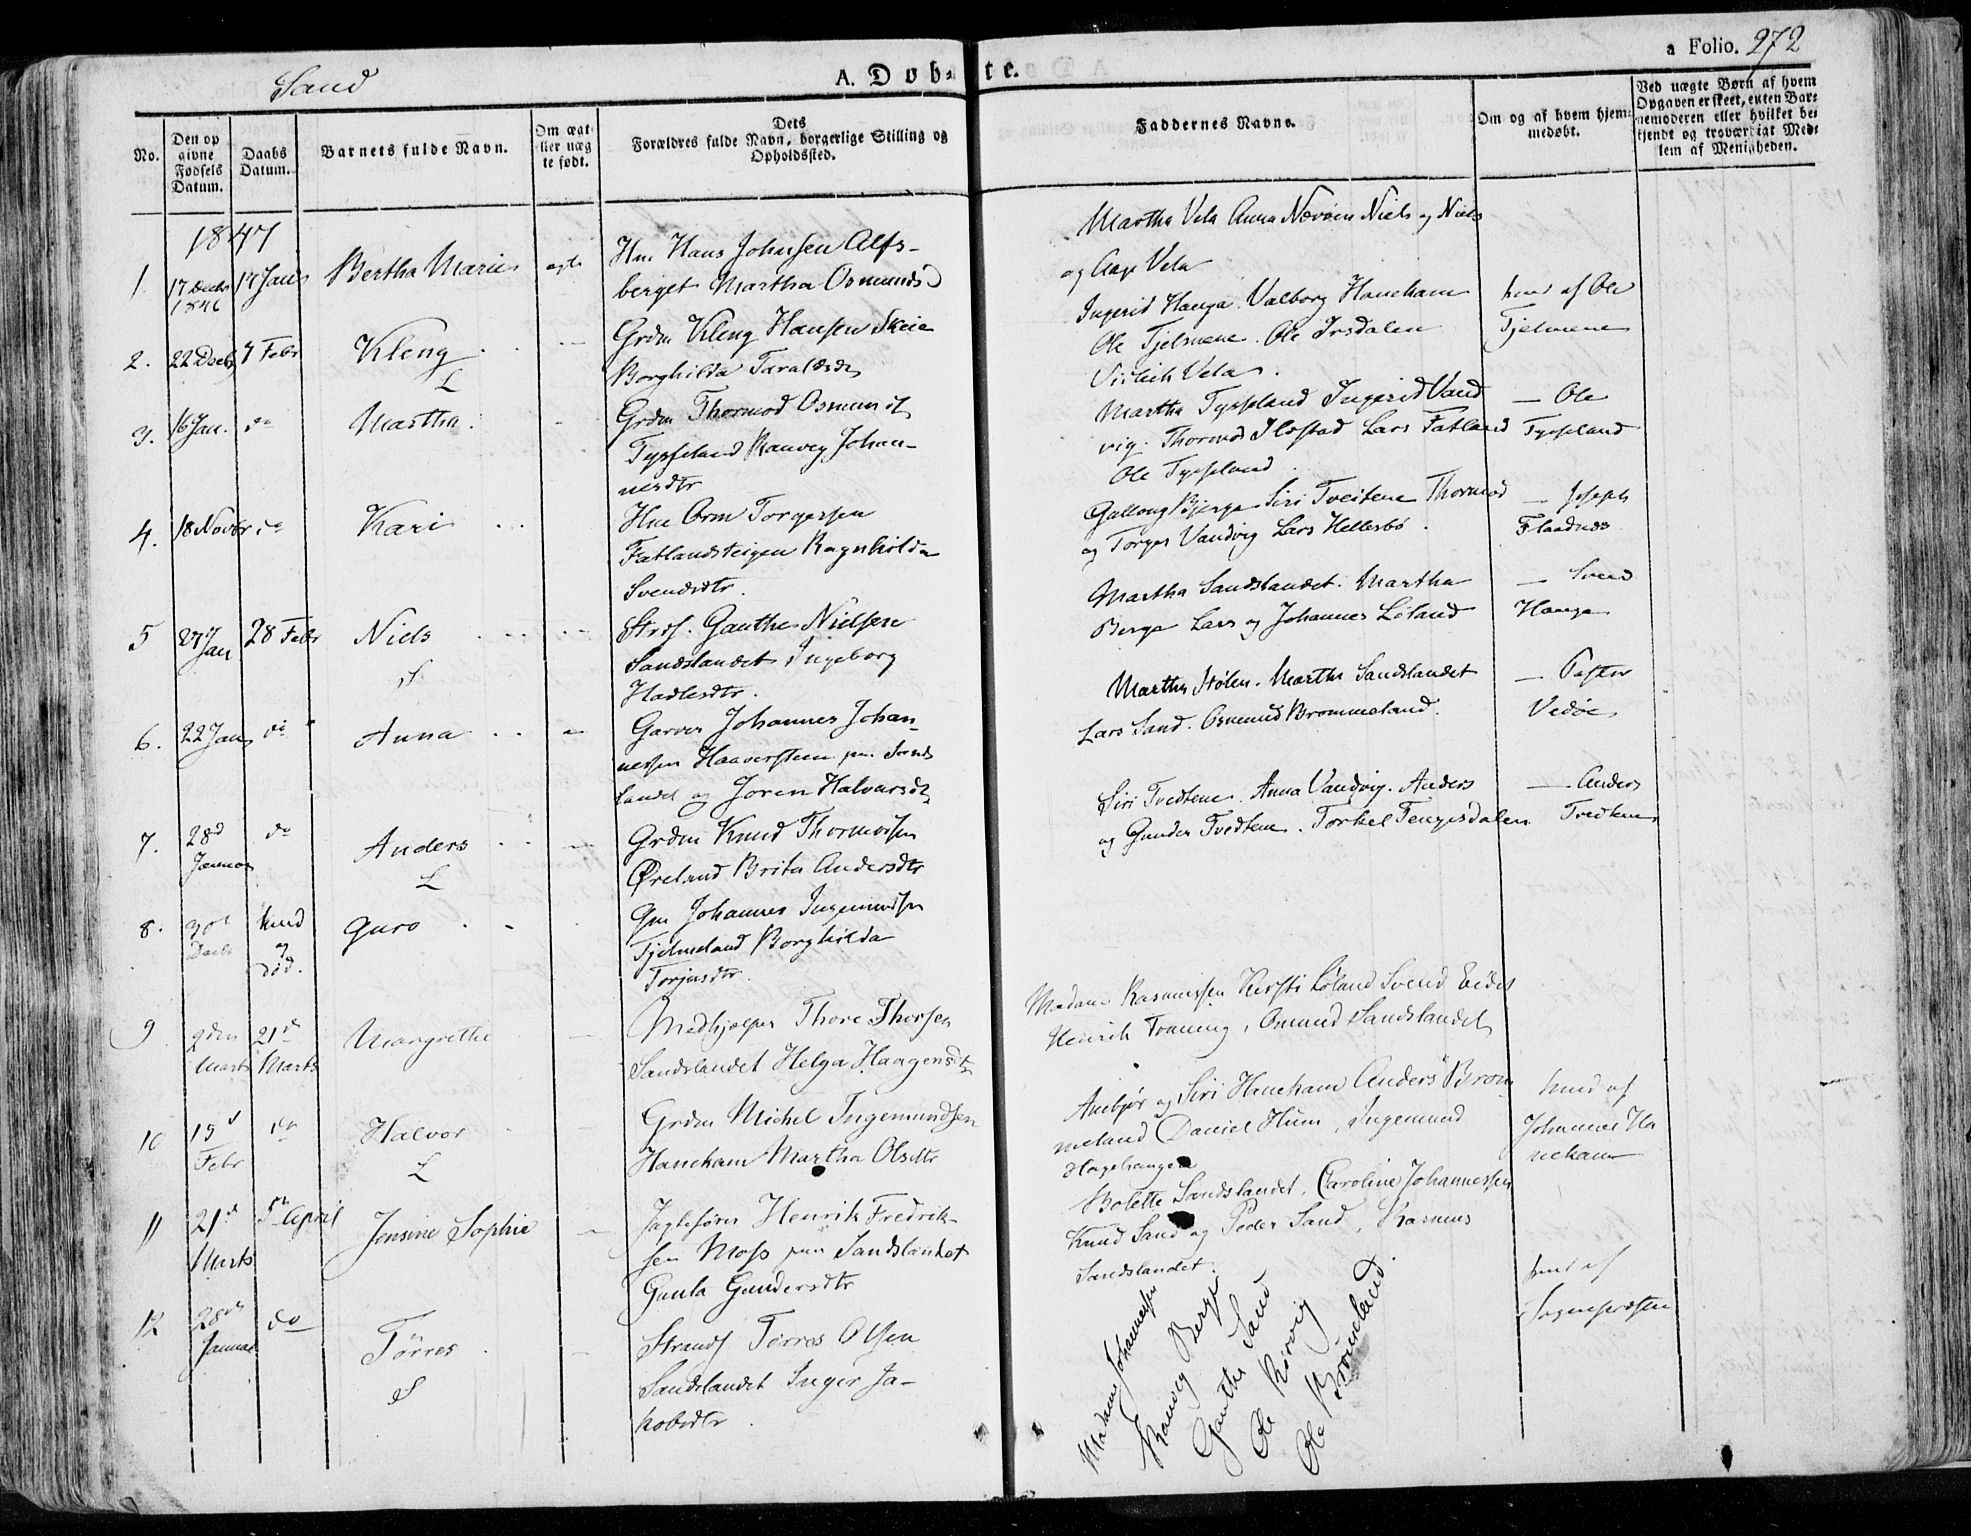 Sand
A. Døb-te.
a Folio. 272
No.
Den op givne Fødsels Datum.
Daabs Datum.
Barnets fulde Navn.
Om ægte eller uægte født.
Dets Forældres fulde Navn, borgerlige Stilling og Opholdssted.
Faddernes Navne.
Om og af hvem hjemmedøbt.
Ved uægte Børn af hvem Opgaven er skeet, enten Barnemoderen eller hvilket bekjendt og troværdigt Medlem af Menigheden.
1847
1. 17 Decbr 1846 17 Jan Bertha Marie ægte
Hm Hans Johnsen Alfs-
berget Martha Osmundsd
Martha Vela Anna Nævøen Niels og Niels
og Aage Vela
2. 22 Decbr 7 Febr Kleng
L
Grdm Kleng Hansen Skeie
Borghilda Taraldsdtr
Ingerid Hauga Valborg Hanekam
Ole Tjelmene. Ole Irsdalen
Vela
hmd af Ole
Tjelmene
3. 16 Jan. do Martha
Grdm Thormod Osmunds
Tysseland Ranveg Johan-
nesdtr
Martha Tysseland Ingerid Vand
vig. Thormod Lars Fatland
Ole Tysseland
— Ole
Tysseland
4. 18 Novbr do Kari
Hm Orm Torgersen
Fatlandsteigen Ragnhilda
Svendsdtr.
Berge Siri Tveitene Thormod
og Torger Vandvig Lars Hellesbø.
— Joseph
Flaadnes
5 27 Jan 28 Febr Niels
S
Strds. Gauthe Nielsen
Sandslandet Ingeborg
Hadlesdtr.
Martha Sandslandet. Martha
Berge Lars og Johannes Løland
— Svend
Hauga
6. 22 Jan do Anna
Garver Johannes Johan-
nessen Haaversteen paa Sands
landet og Joren Halvorsdtr
Martha Stølen. Martha Sandslandet
Lars Sand. Osmund Brommeland.
—
Vedøe
7. 28d Januar do Anders
L
Grdm Knud Thormodsen
Øreland Brita Andersdtr
Siri Tvedtene. Anna Vandvig. Anders
og Gunder Tvedtene. Torkel Tengesdalen
— Anders
Tvedtene
8. 30d Decbr hmd og død. Guro
Gm Johannes Ingemundsen
Tjelmeland Borghilda
Torjusdtr.
9 2den Marts 21d Marts Margrethe
Medhjælper Thore Thorsen
Sandslandet Helga Haagensdtr
Madam Rasmussen Kirsti Løland Svend Eides
Henrik Tonning, Osmund Sandslandet
10 19d Febr do Halvor
L
Grdm Michel Ingemundsen
Hanekam Martha Olsdtr
Anbjør og Siri Hanekam Anders Brom
meland Daniel Hum, Ingemund
hmd af
Johannes Ha
nekam
11 21d Marts 5te April Jensine Sophie
Jagtefører Henrik Fredrik-
sen Moss paa Sandslandet
Gunla Gundersdtr
Bolette Sandslandet, Caroline Johannessen
Knud Sand og Peder Sand, Rasmus
Sandslandet.
12 28de Januar do Tørres
S
Strands Tørres Olsen
Sandslandet Inger Ja-
kobsdtr.
Madame Johannessen
Ranveg Berge
Gauthe Sand
Ole Rørvig
Ole Brommeland
hmd af
Sognepresten